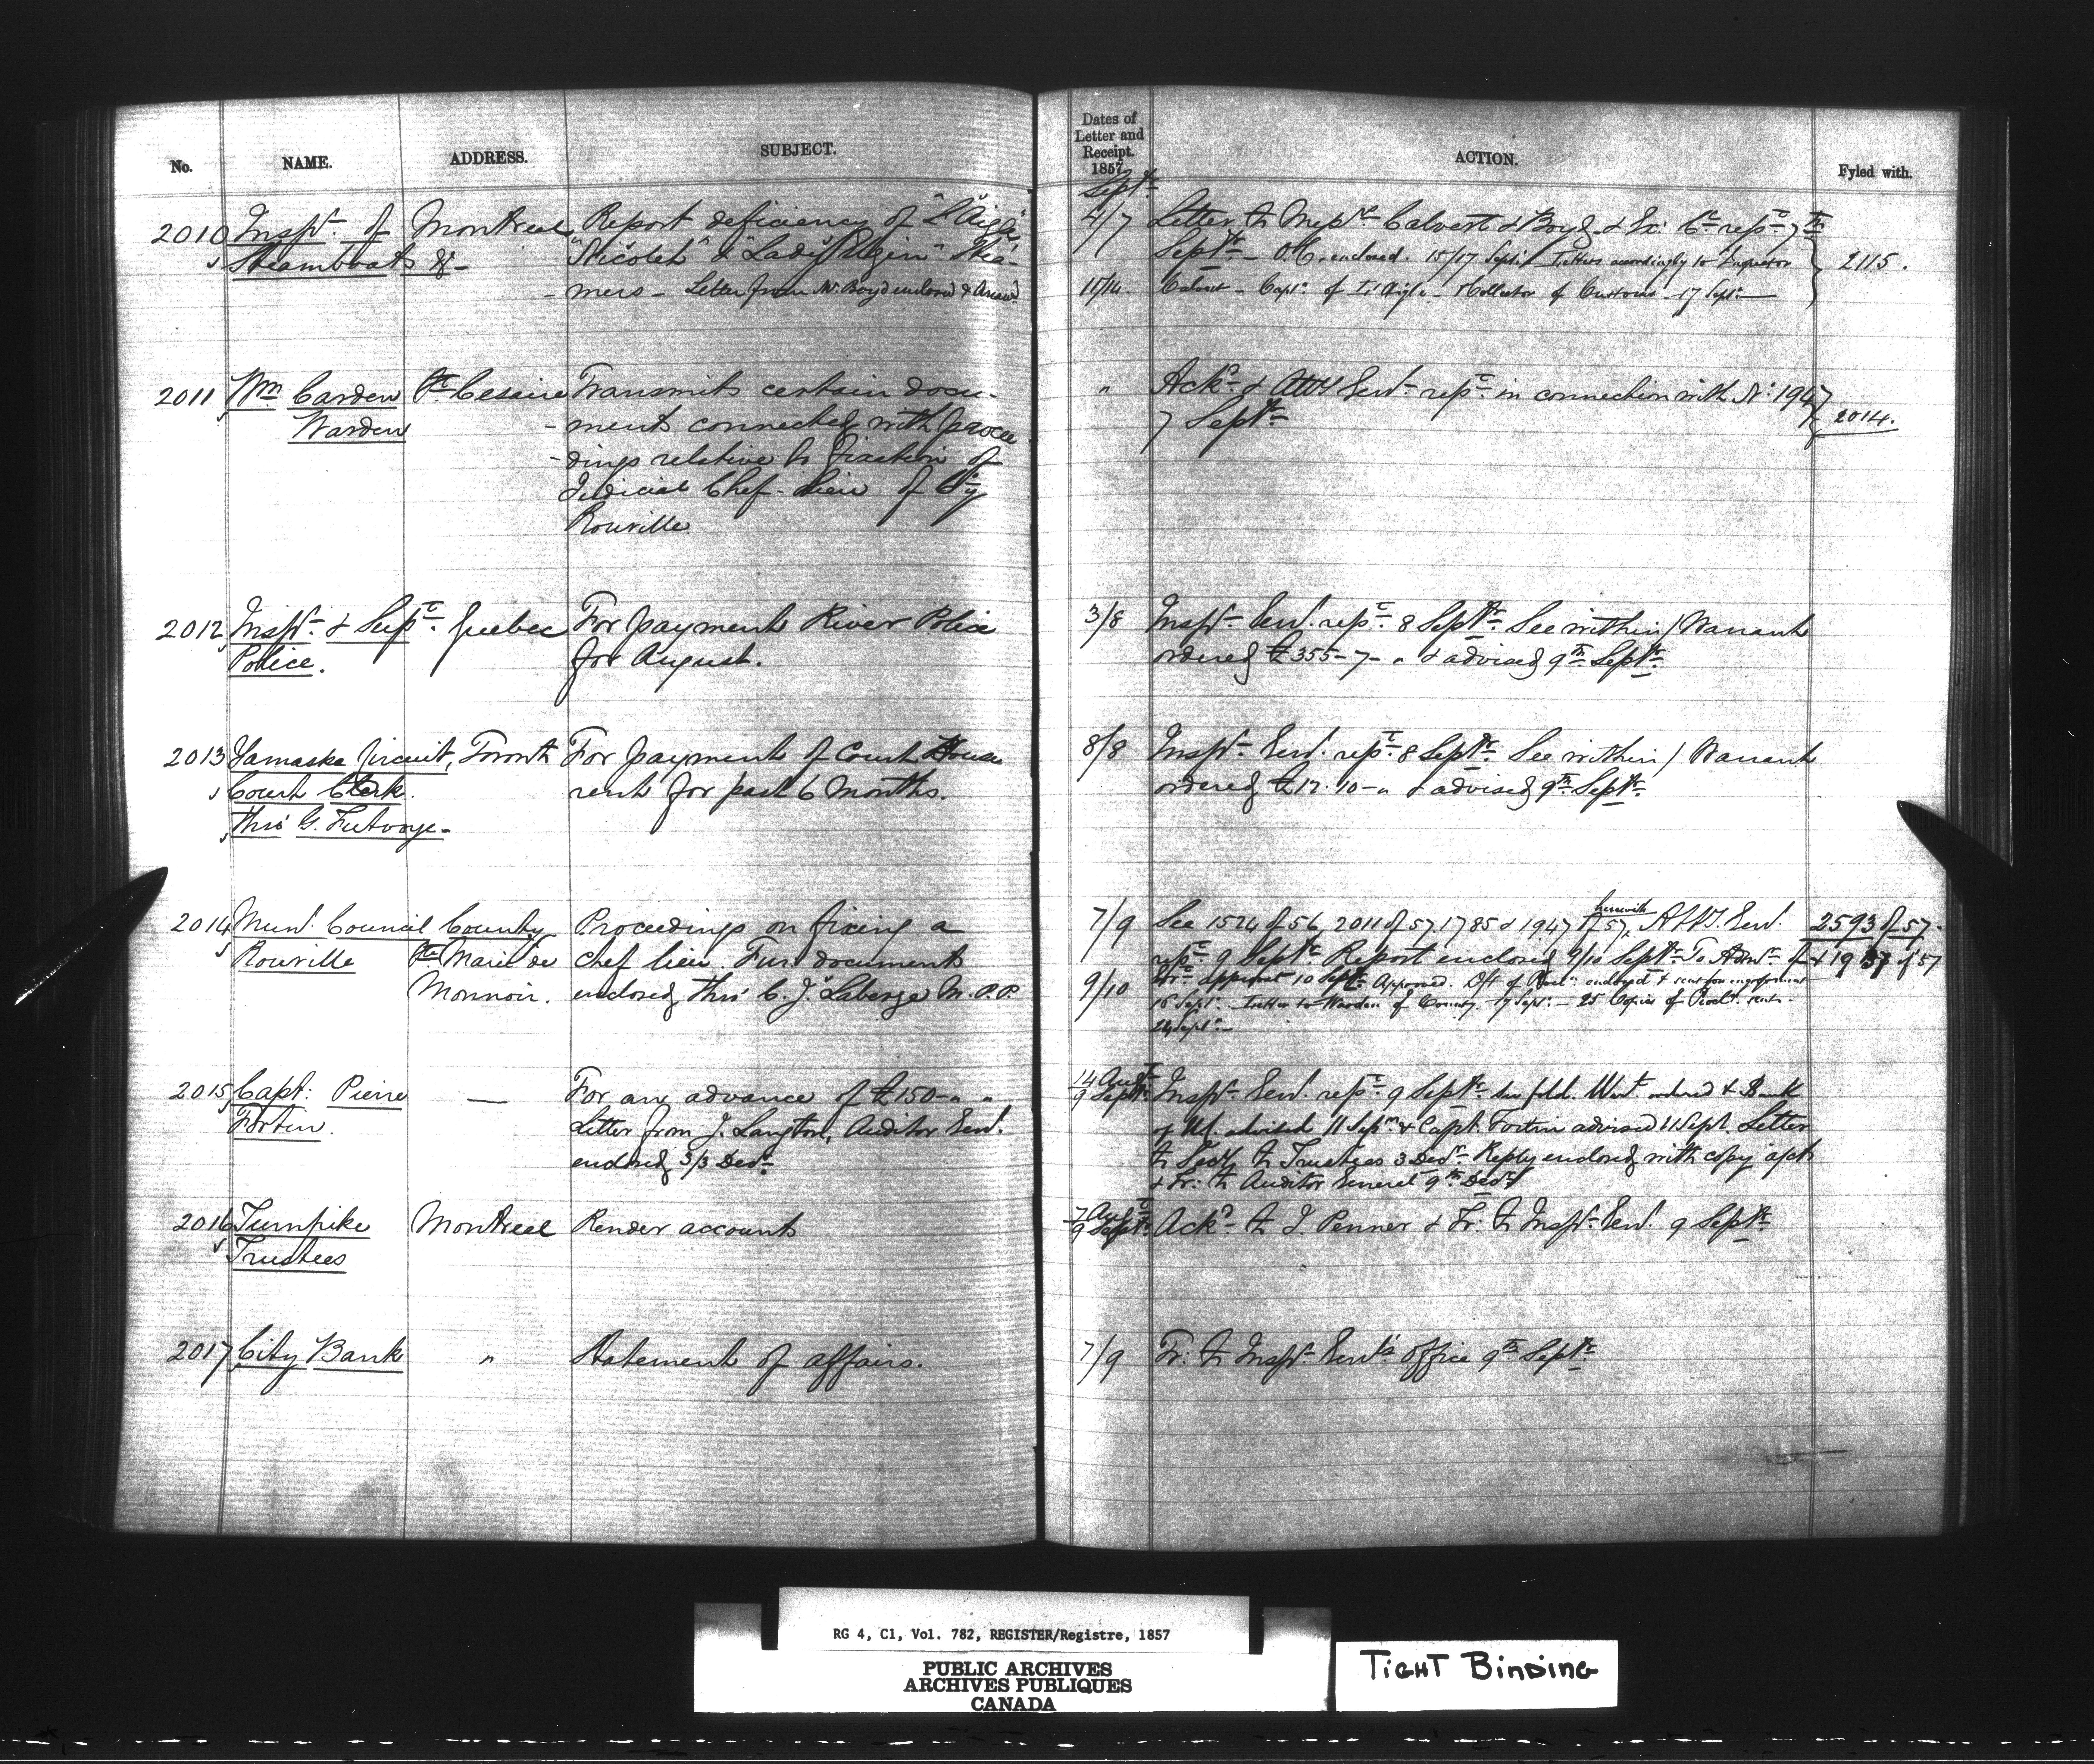 No. NAME. ADDRESS. SUBJECT.
2010 Inspr. of Montreal Report deficiency of "L'Aigle",
Steamboats &c- "Nicolet" & "Lady Elgin" Stea-
-mers - Letter from Mr Boyd enclosed & Answd
2011 Wm Carden St Cesaire Transmits certain docu-
Warden -ments connected with procee
-dings relative to fixation of
Judicial Chef-lieu of Cty
Rouville.
2012 Inspr. & Supt. Quebec For payment River Police
Police. for August.
2013 Yamaska Circuit, Toronto For payment of Court House
Court Clerk. rent for past 6 Months.
Thro' G. Futvoye-
2014 Munl. Council County Proceedings on fixing a
Rouville Ste Marie de chef lieu. Further documents
Monnoir. enclosed, thro' C. J. Laberge M.P.P.
2015 Capt: Pierre — For an advance of £150-"-"
Fortin. Letter from J. Langton, Auditor Genl.
enclosed 3/3 Decr
2016 Turnpike Montreal Render accounts
Trustees
2017 City Bank " Statement of affairs.
Dates of
Letter and
Receipt.
1857.
ACTION.
Fyled with.
Septr
4/7 Letter to Messrs Calvert & Boyd & Ex: Cl rept 7th
Septr - O.C. enclosed. 15/17 Sept. / Letters accordingly to Inspector 2115.
15/16. Calvert - Capt. of L'Aigle - Collector of Customs - 17 Sept.
" Ackd & Atty Genl. rept in connection with No 1947
7 Septr 2014.
3/8 Inspr Genl. rept. 8 Septr See within / Warrant
ordered £355-7-" & advised 9th Septr
8/8 Inspr Genl. rept 8 Septr See within / Warrant
ordered £12.10-" & advised 9th Septr
herewith
7/9 See 1524 of 56, 2011 of 57. 1785 & 1947 of 57, Atty. Genl. 2593 of 57.
rept 9 Septr Report enclosed 9/10 Septr To Admr of & 1957 of 57
9/10 for approval 10 Sept. Approved. Dft of Procl: endorsed & sent for engrossment
16 Sept. - Letter to Warden of County 17 Sept. - 25 Copies of Procl. sent -
24 Sept. -
14 Augt
9 Septr Inspr Genl. rept 9 Septr See fold. Wart ordered & Bank
of U.C. advised 11 Sepr & Capt. Fortin advised 11 Sept. Letter
to Secy to Trustees 3 Decr Reply enclosed with copy of acct
& Fr: to Auditor General 9th Decr
7 Augt
9 Septr Ackd to J. Penner & Fr: to Inspr Genl. 9 Septr
7/9 Fr: to Inspr Genl's office 9th Septr
RG 4, C1, Vol. 782, REGISTER/Registre, 1857
PUBLIC ARCHIVES
ARCHIVES PUBLIQUES
CANADA
TIGHT BINDING